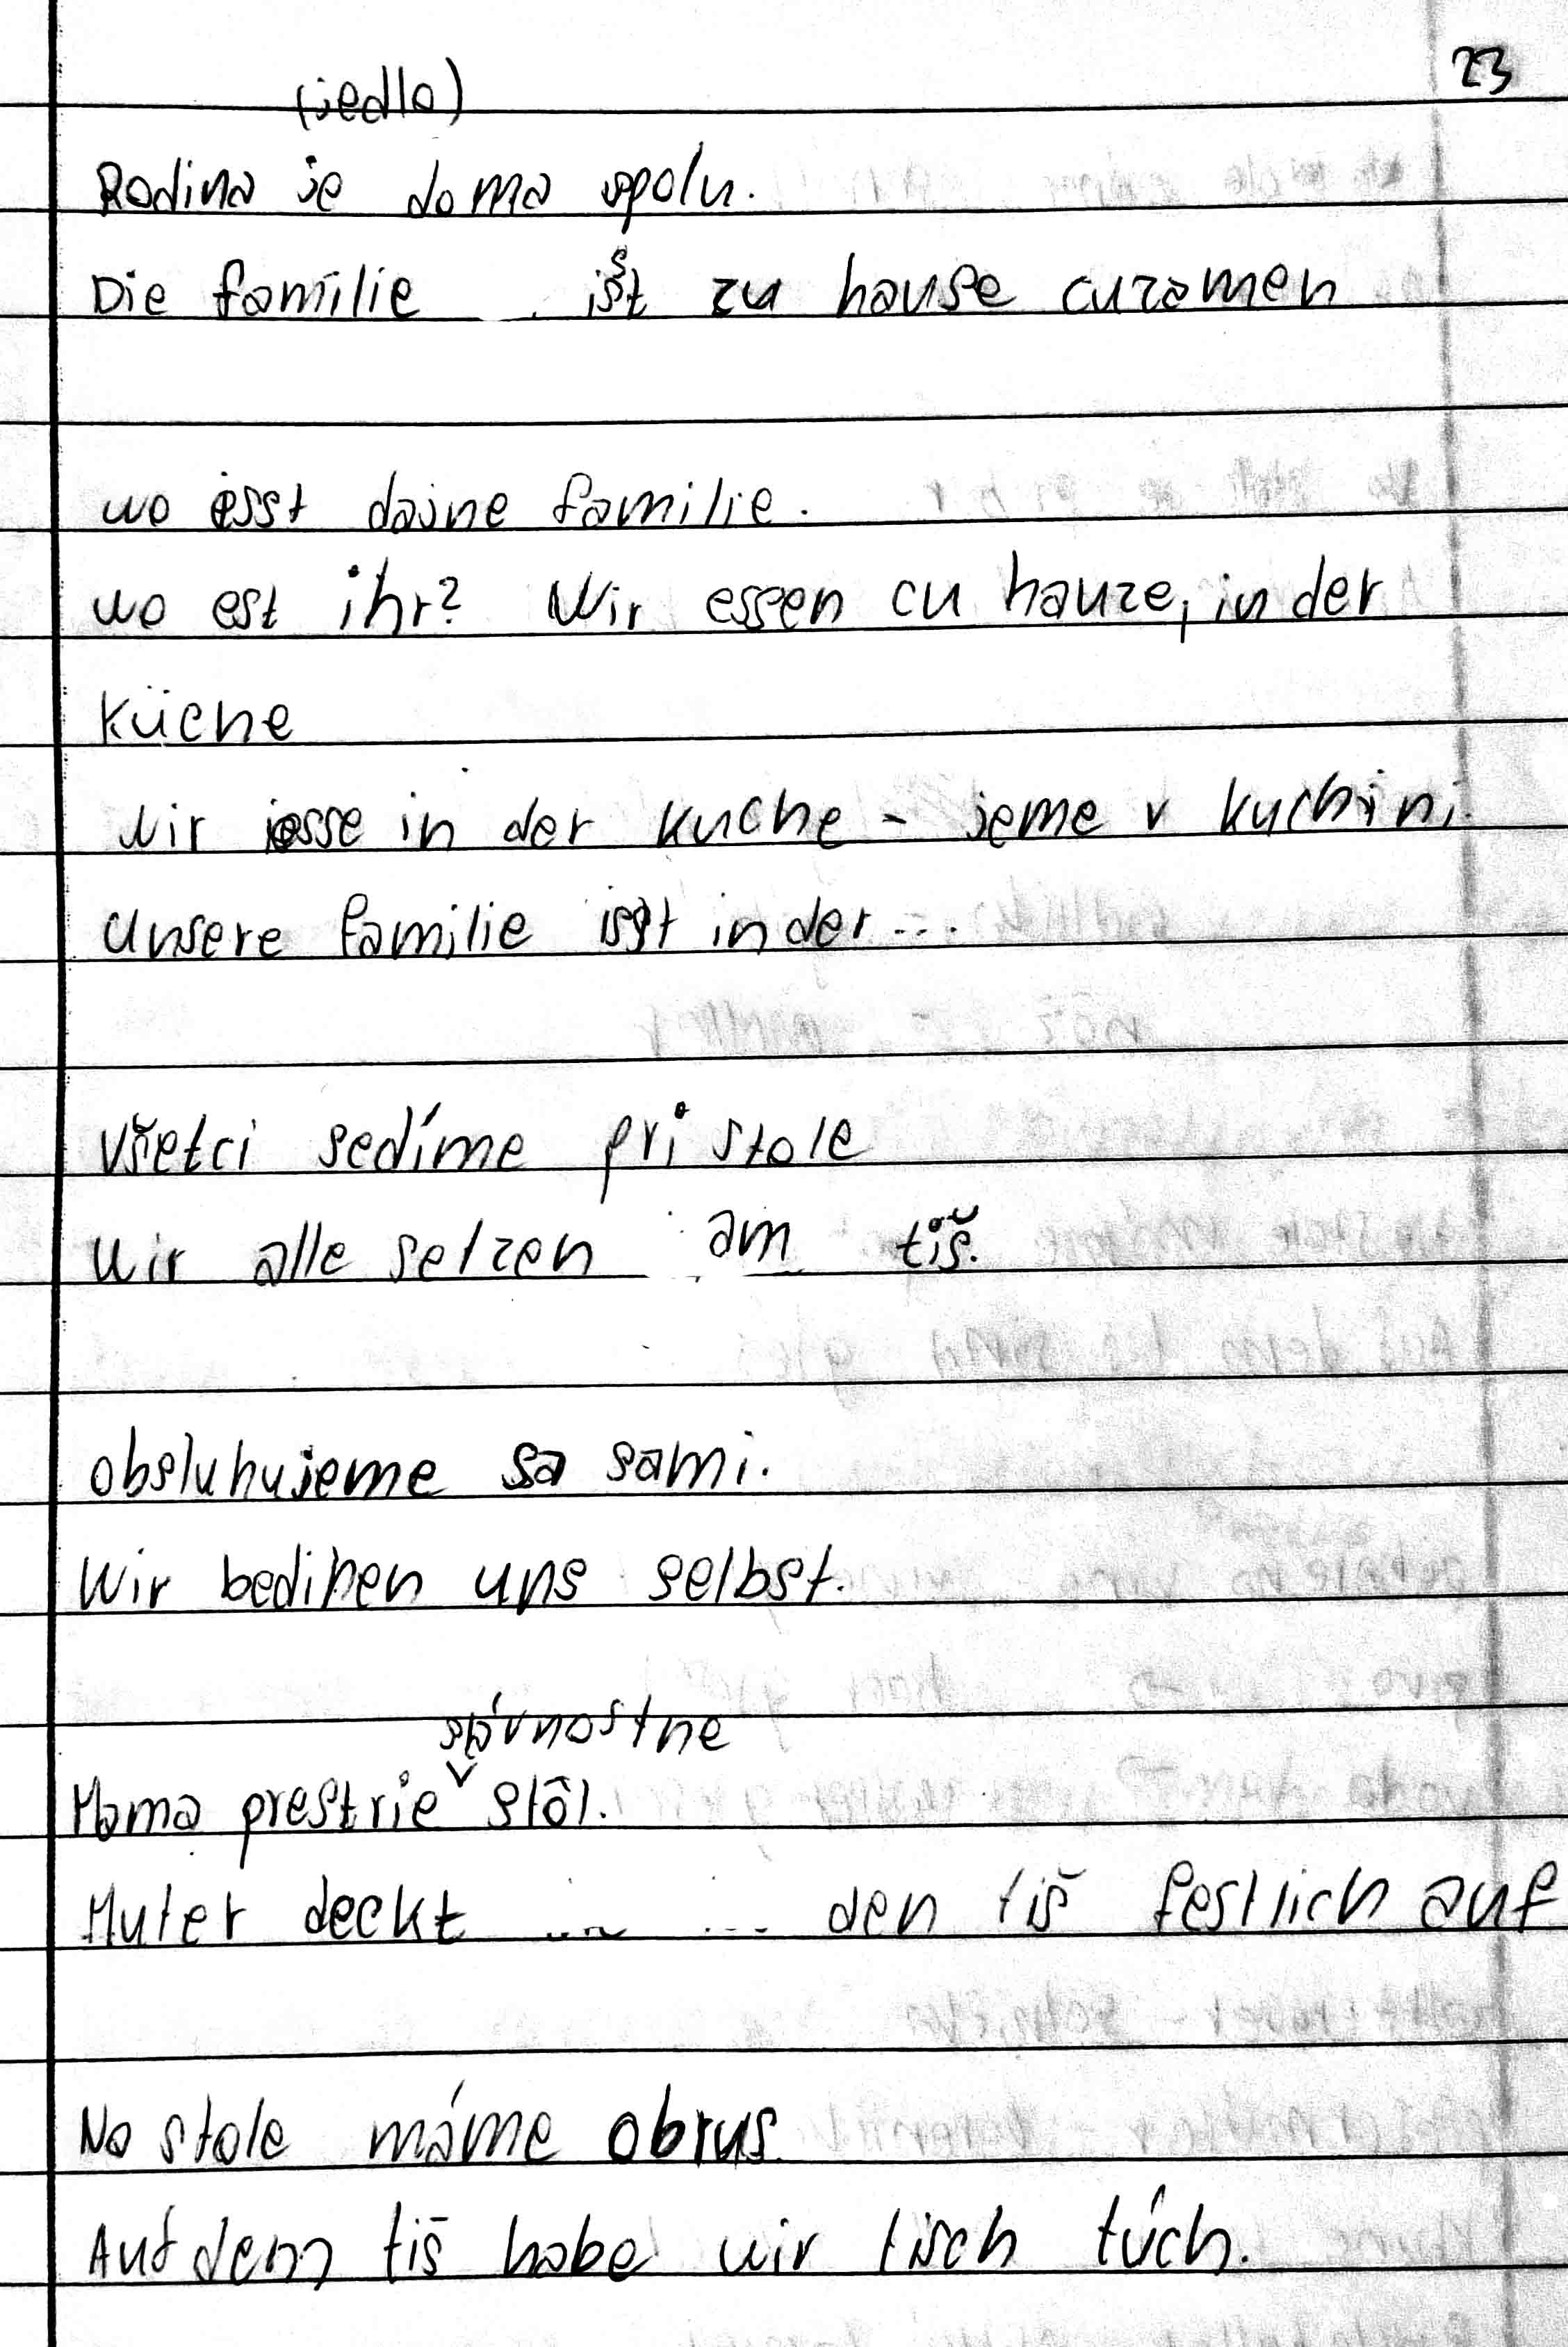 23
(jedlo)
Rodina je doma spolu.
Die familie ist zu hause cuzamen
wo isst dajne familie.
wo est ihr? Wir essen cu hauze, in der
Küche
Wir esse in der kuche - jeme v kuchini
Unsere familie isst in der ...
Všetci sedíme pri stole
Wir alle setzen am tiš.
obsluhujeme sa sami.
Wir bedinen uns selbst.
slávnostne
Mama prestrie stôl.
Muter deckt den tiš festlich auf
Na stole máme obrus.
Auf dem tiš habe wir tisch túch.